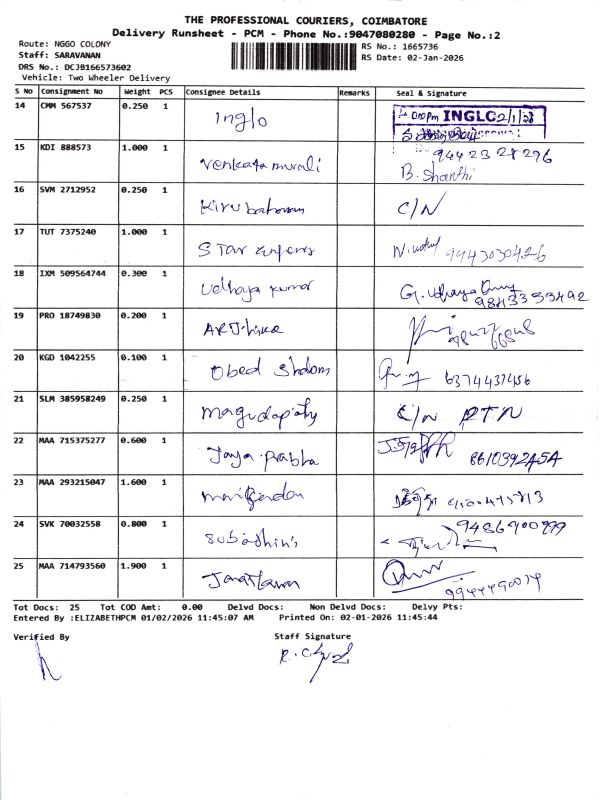 THE PROFESSIONAL COURIERS, COIMBATORE
Delivery Runsheet - PCM - Phone No.:9047080280 - Page No.:2
Route: NGGO COLONY
RS No.: 1665736
Staff: SARAVANAN
RS Date: 02-Jan-2026
DRS No.: DCJB166573602
Vehicle: Two Wheeler Delivery
S No Consignment No Weight PCS Consignee Details Remarks Seal & Signature
14 CMM 567537 0.250 1 Inglo INGLO 2/1/26
15 KDI 888573 1.000 1 Venkata murali 9442328296
B. Shanthi
16 SVM 2712952 0.250 1 Kirubaharan C/N
17 TUT 7375240 1.000 1 Star 9943030426
18 IXM 509564744 0.300 1 Udhaya kumar G. Udhaya Kumar
9843353492
19 PRO 18749830 0.200 1
20 KGD 1042255 0.100 1 Obed Shalom 6374437456
21 SLM 385958249 0.250 1 C/N RTN
22 MAA 715375277 0.600 1 Jaya Prabha
23 MAA 293215047 1.600 1
24 SVK 70032558 0.800 1 Subashini 9486900999
25 MAA 714793560 1.900 1
Tot Docs: 25 Tot COD Amt: 0.00 Delvd Docs: Non Delvd Docs: Delvy Pts:
Entered By :ELIZABETHPCM 01/02/2026 11:45:07 AM Printed On: 02-01-2026 11:45:44
Verified By Staff Signature